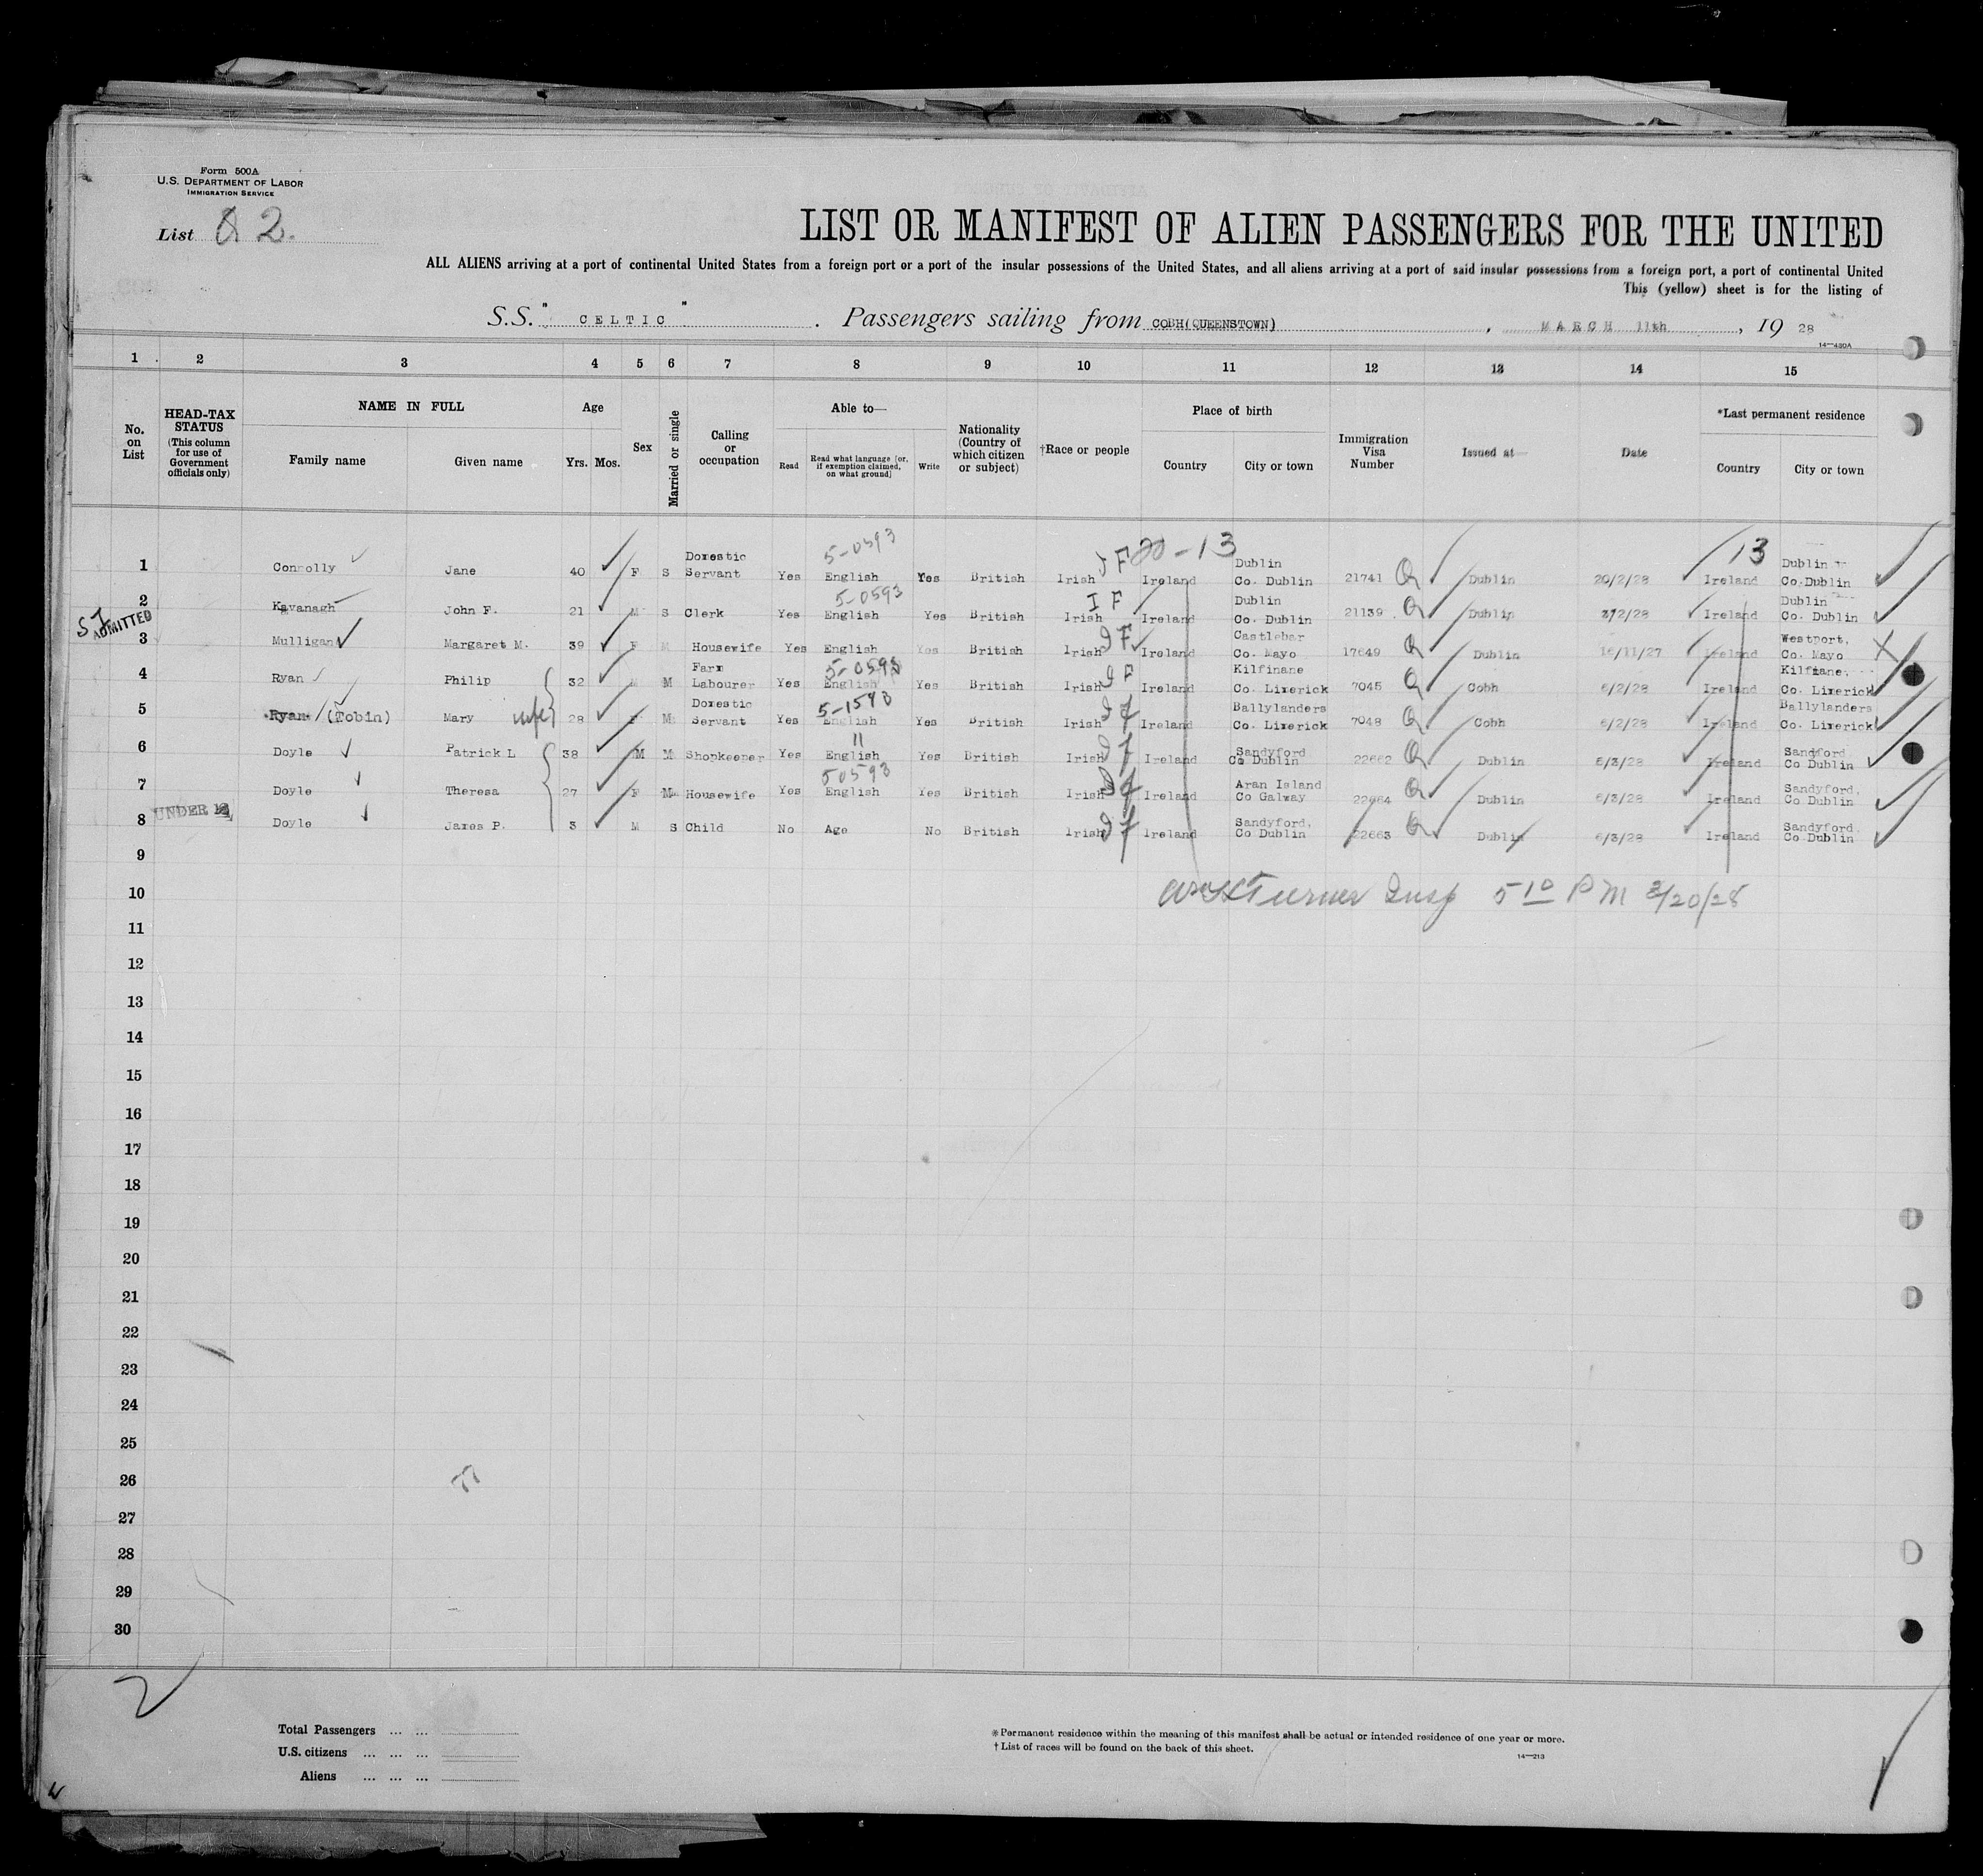 Form 500A
U.S. DEPARTMENT OF LABOR
IMMIGRATION SERVICE
List 82.
LIST OR MANIFEST OF ALIEN PASSENGERS FOR THE UNITED
ALL ALIENS arriving at a port of continental United States from a foreign port or a port of the insular possessions of the United States, and all aliens arriving at a port of said insular possessions from a foreign port, a port of continental United
This (yellow) sheet is for the listing of
S.S. " CELTIC " . Passengers sailing from COBH(QUEENSTOWN) , MARCH 11th , 19 28
14—480A
1 2 3 4 5 6 7 8 9 10 11 12 13 14 15
No. on List
HEAD-TAX STATUS (This column for use of Government officials only)
NAME IN FULL
Family name Given name
Age
Yrs. Mos.
Sex
Married or single
Calling or occupation
Able to—
Read
Read what language [or, if exemption claimed, on what ground]
Write
Nationality (Country of which citizen or subject)
†Race or people
Place of birth
Country City or town
Immigration Visa Number
Issued at
Date
*Last permanent residence
Country City or town
5-0593 IF 20-13 13
1 Connolly Jane 40 F S Domestic Servant Yes English Yes British Irish Ireland Dublin Co. Dublin 21741 Q Dublin 20/2/28 Ireland Dublin Co.Dublin
5-0593 IF
2 Kavanagh John F. 21 M S Clerk Yes English Yes British Irish Ireland Dublin Co. Dublin 21139 Q Dublin Ireland Dublin Co. Dublin
SI ADMITTED
3 Mulligan Margaret M. 39 F M Housewife Yes English Yes British Irish IF Ireland Castlebar Co. Mayo 17649 Q Dublin Ireland Westport, Co. Mayo X
5-0593
4 Ryan Philip 32 M M Farm Labourer Yes English Yes British Irish IF Ireland Kilfinane Co. Limerick 7045 Q Cobh 6/2/28 Ireland Kilfinane, Co. Limerick
5-1593
5 Ryan (Tobin) Mary wife 28 F M Domestic Servant Yes English Yes British Irish If Ireland Ballylanders Co. Limerick 7048 Q Cobh 6/2/28 Ireland Ballylanders Co. Limerick
"
6 Doyle Patrick L 38 M M Shopkeeper Yes English Yes British Irish If Ireland Sandyford Co Dublin 22662 Q Dublin 6/3/28 Ireland Sandyford, Co Dublin
50593
7 Doyle Theresa 27 F M Housewife Yes English Yes British Irish If Ireland Aran Island Co Galway 22664 Q Dublin 6/3/28 Ireland Sandyford, Co Dublin
UNDER
8 Doyle James P. 3 M S Child No Age No British Irish If Ireland Sandyford, Co Dublin 22663 Q Dublin 6/3/28 Ireland Sandyford, Co Dublin
9
10 Turner Insp 5 10 PM 3/20/28
11
12
13
14
15
16
17
18
19
20
21
22
23
24
25
26
27
28
29
30
Total Passengers ... ...
U.S. citizens ... ... ...
Aliens ... ... ...
*Permanent residence within the meaning of this manifest shall be actual or intended residence of one year or more.
†List of races will be found on the back of this sheet.
14—213